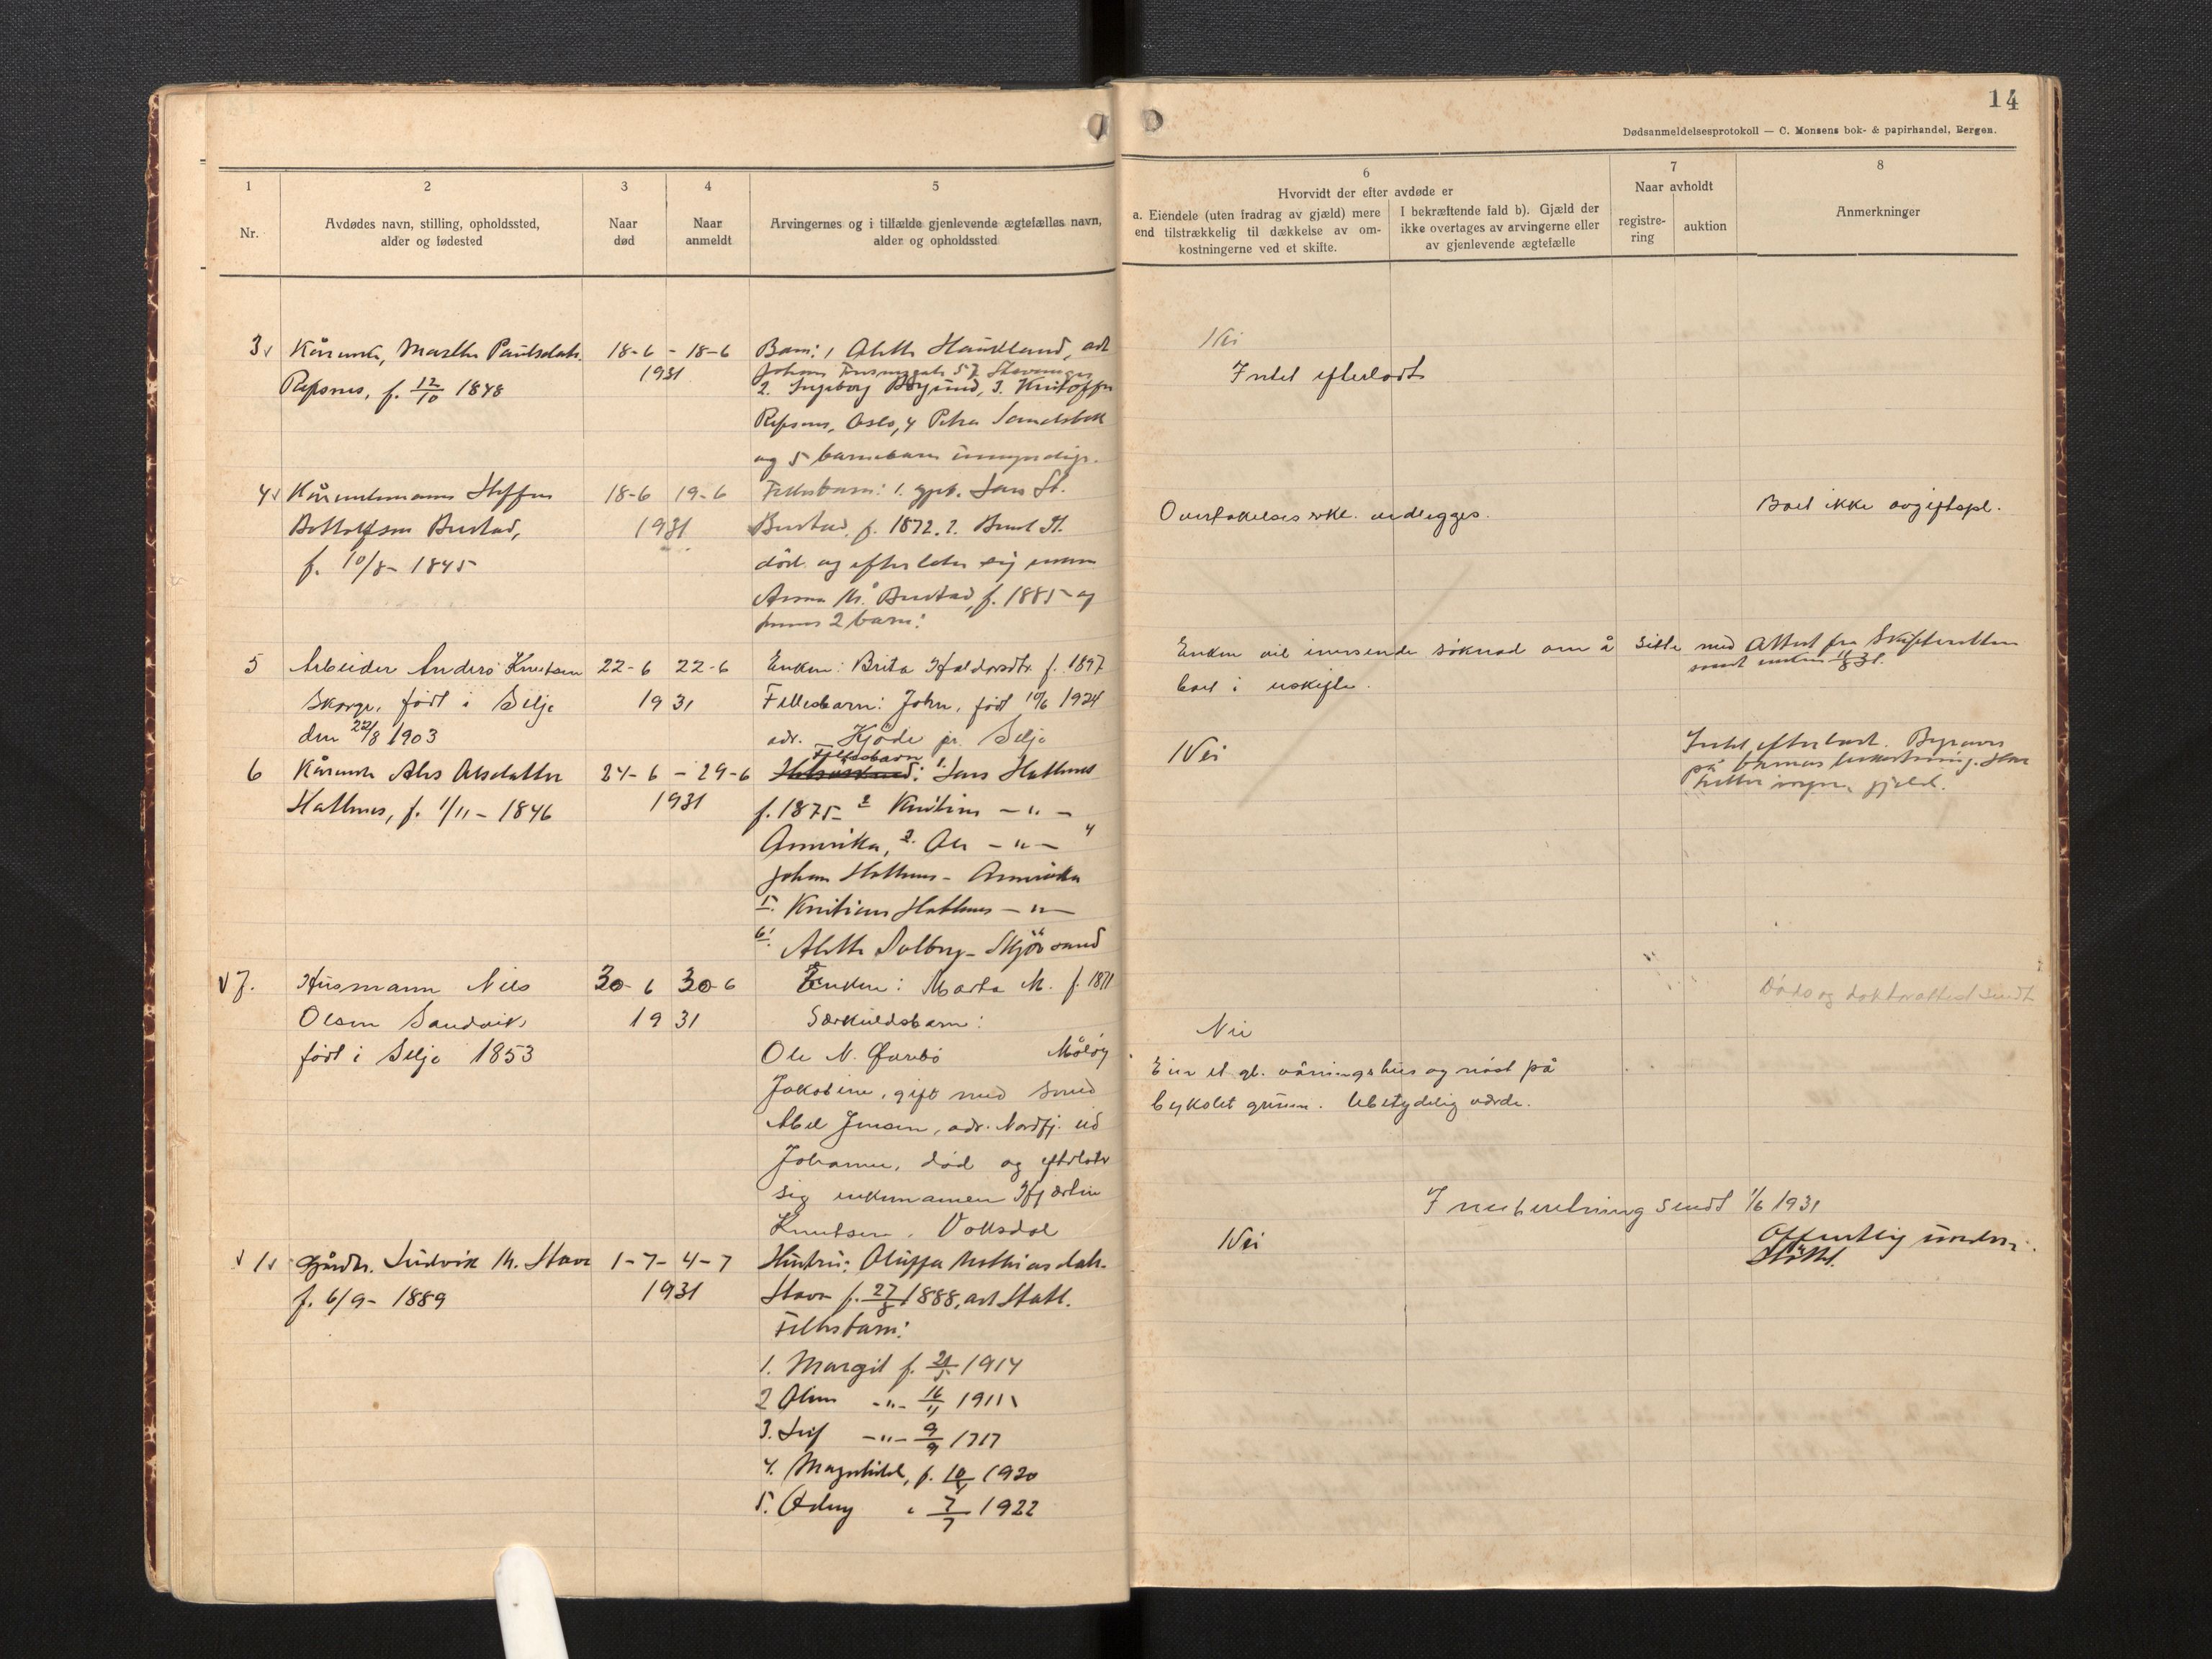 14
Dødsanmeldelsesprotokoll — C. Monsens bok- & papirhandel, Bergen.
1
2
3
4
5
6
7
8
Nr.
Avdødes navn, stilling, opholdssted,
alder og fødested
Naar
død
Naar
anmeldt
Arvingernes og i tilfælde gjenlevende ægtefælles navn,
alder og opholdssted
Hvorvidt der efter avdøde er
a. Eiendele (uten fradrag av gjæld) mere
end tilstrækkelig til dækkelse av om-
kostningerne ved et skifte.
I bekræftende fald b). Gjæld der
ikke overtages av arvingerne eller
av gjenlevende ægtefælle
Naar avholdt
registre-
ring
auktion
Anmerkninger
3 Kårenke, Marthe Paulsdatr. 18-6 - 18-6 Barn: 1 Alette Haukland, adr
Repsnes, f. 12/10 1848 1931
2. Ingeborg 3. Kristoffer
Oslo, 4 Petra
og 5 barnebarn
Nei
Intet efterladt
4 Kårenkemann Steffen 18-6 19-6 Fellesbarn: 1. Lars St.
Bustad, 1931 Bustad, f. 1872. 2. St.
f. 10/8- 1845 død og efterlater sig
Anna M. Bustad, f. 1885 og
2 barn:
Overtakelses erkl. vedlegges.
Boet ikke avgiftspl.
5 Arbeider Anders Knutsen 22-6 22-6 Enken: Brita Haldorsdtr. f. 1897
Skorge, født i Selje 1931 Fellesbarn: John, født 10/6 1924
den 22/8 1903 adr. Hjöde pr. Selje
Enken vil innsende söknad om å sitte med
boet i uskifte.
Attest fra Skifteretten
sendt enken 11/8 31.
6 Kårenke Alis Olsdatter 24-6 - 29-6 Fellesbarn: 1. Lars Hatlenes
Hatlenes, f. 1/11- 1846 1931 f. 1875 2 Kristine - " -
Amerika, 3. Ole - " - 4
Johan Hatlenes - Amerika
5. Kristian Hatlenes - " -
6. Alette Solberg - Skjörsand
Nei
Intet efterladt.
på barnas bekostning. Har
heller ingen gjeld.
7. Husmann Nils 30-6 30-6 Enken: Marta M. f. 1871
Olsen Sandvik 1931 Særkuldsbarn:
født i Selje 1853 Ole N. Måløy
Jakobine, gift med smed
Abel Jensen, adr. Nordfj.eid
Johanne, død og efterlater
sig enkemannen
Knutsen.
Döds og doktorattest sendt
Nei
Eier et gl. våningshus og nöst på
bykslet grunn. Ubetydelig værde.
Innberetning sendt 1/6 1931
1 Gårdbr. Ludvik M. Stave 1-7- 4-7 Hustru: Oluffa Mathiasdatr.
f. 6/9- 1889 1931 Stave f. 27/8 1888, adr Statt.
Fellesbarn:
1. Margit f. 21/5 1914
2 - " - 16/11 1915
3. Leif - " - 9/9 1917
4. Magnhild, f. 1920
5. " 7/7 1922
Nei
Offentlig